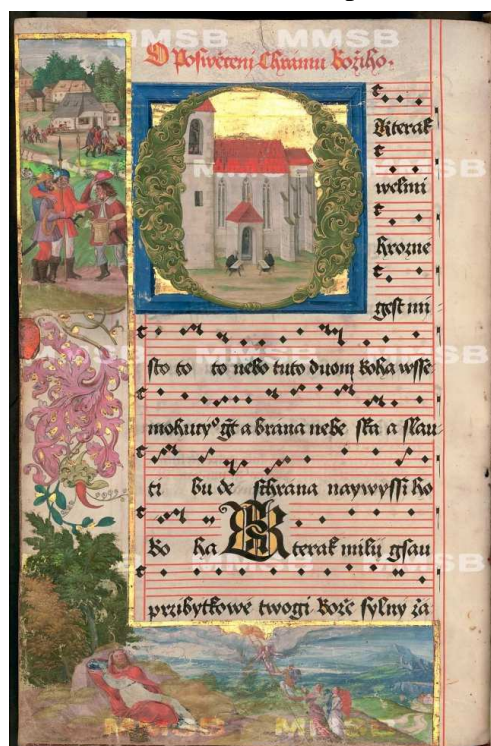 O Poswěceni Chramu Božiho.
Kterak
welmi
hrozne
gest mi
sto to to nebo tuto duom boha wsse
mohutyᵒ gt a brana nebe ska a slau
ti bu de schrana naywyssi ho
Bo ha Kterak milij gsau
przibytkowe twogi Bože sylny za
MMSB MMSB
MMSB
MMSB
MMSB
MMSB
MMSB MMSB